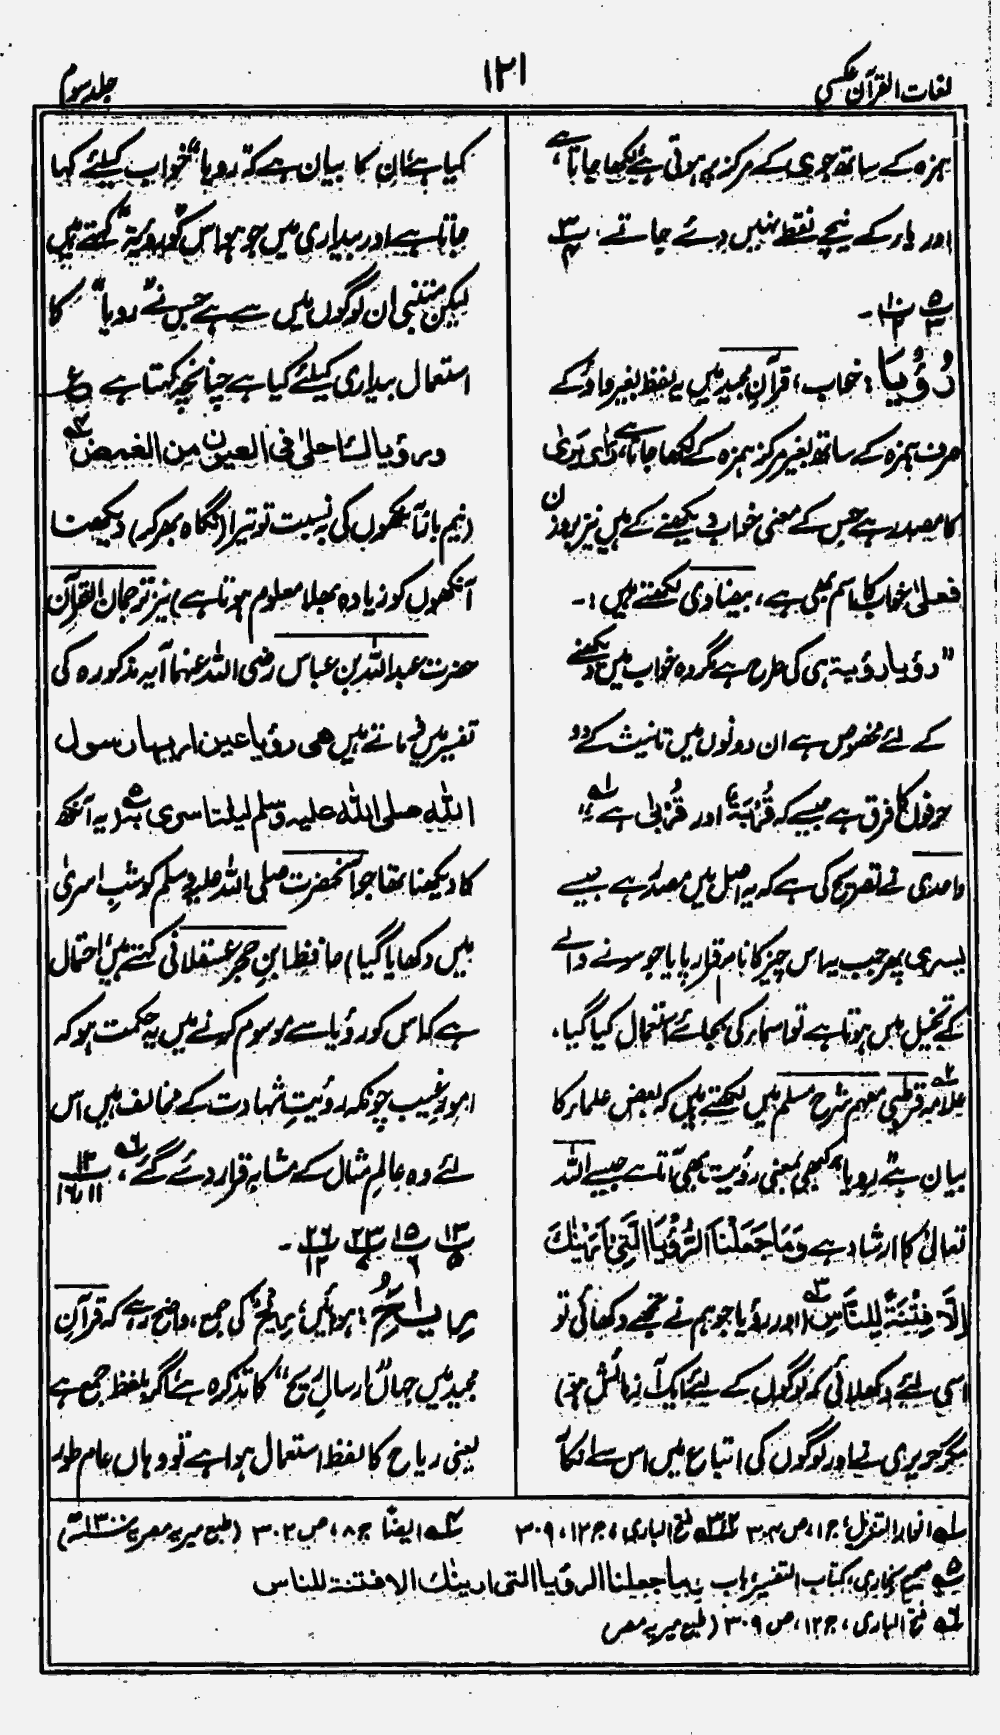 لغات القرآن عکسی
۱۲۱
جلد سوم
ہمزہ کے ساتھ جو ی کے مرکز پر ہوتی ہے لکھا جاتا ہے،
اور یار کے نیچے نقطے نہیں دئے جاتے
رُؤْیَا : خواب، قرآن مجید میں یہ لفظ بغیر واؤ کے
صرف ہمزہ کے ساتھ بغیر مرکز ہمزہ کے لکھا جاتا ہے، رَأی یَرَیٰ
کا مصدر ہے جس کے معنی خواب دیکھنے کے ہیں نیز بروزن
فعلیٰ خواب کا اسم بھی ہے، بیضاوی لکھتے ہیں :۔
"رؤیا رؤیة ہی کی طرح ہے مگر وہ خواب میں دیکھنے
کے لئے مخصوص ہے ان دونوں میں تانیث کے دو
حرفوں کا فرق ہے جیسے کہ قُرْبَةٌ اور قُرْبیٰ ہے"
واحدی نے تصریح کی ہے کہ یہ اصل میں مصدر ہے جیسے
یسریٰ پھر جب یہ اس چیز کا نام قرار پایا جو سونے والے
کے تخیل میں ہوتا ہے تو اسمار کی بجائے استعمال کیا گیا،
علامہ قرطبی مفہم شرح مسلم میں لکھتے ہیں کہ بعض علمار کا
بیان ہے "رویا" کبھی بمعنی رؤیت بھی آتا ہے جیسے اللہ
تعالیٰ کا ارشاد ہے وَمَا جَعَلْنَا الرُّؤْیَا الَّتِیْ اَرَیْنٰكَ
اِلَّا فِتْنَةً لِّلنَّاسِ (اور رؤیا جو ہم نے تجھے دکھائی تو
اسی لئے دکھلائی کہ لوگوں کے لئے ایک آزمائش ہو)
مگر حریری نے اور لوگوں کی اتباع میں اس سے انکار
کیا ہے ان کا بیان ہے کہ "رویا" خواب کیلئے کہا
جاتا ہے اور بیداری میں جو ہو اس کو "رویة" کہتے ہیں
لیکن متنبی ان لوگوں میں سے ہے جس نے "رویا" کا
استعمال بیداری کیلئے کیا ہے چنانچہ کہتا ہے ع
ورؤیاك احلیٰ فی العیون من الغمض
(نیم باز آنکھوں کی بہ نسبت تو تیرا (نگاہ بھر کر) دیکھنا
آنکھوں کو زیادہ بھلا معلوم ہوتا ہے) نیز ترجمان القرآن
حضرت عبداللہ بن عباس رضی اللہ عنہما آیہ مذکورہ کی
تفسیر میں فرماتے ہیں ھی رؤیا عین اریہا رسول
اللہ صلی اللہ علیہ وسلم لیلة اسری بہ (یہ آنکھ
کا دیکھنا تھا جو آنحضرت صلی اللہ علیہ وسلم کو شبِ اسریٰ
میں دکھایا گیا) حافظ ابن حجر عسقلانی کہتے ہیں احتمال
ہے کہ اس کو رؤیا سے موسوم کرنے میں یہ حکمت ہو کہ
امور غیب چونکہ رؤیتِ شہادت کے مخالف ہیں اس
لئے وہ عالم مثال کے مشابہ قرار دئے گئے،
رِیَاحٌ : ہوائیں، رِیْحٌ کی جمع، واضح رہے کہ قرآن
مجید میں جہاں "ارسال ریح" کا تذکرہ ہے اگر بلفظ جمع ہے
یعنی ریاح کا لفظ استعمال ہوا ہے تو وہاں عام طور
انوار التنزیل، ج۱، ص ۳۰۴ فتح الباری، ج۱۲، ۳۰۹ ایضاً ج۸، ص ۳۰۲ (طبع میریہ مصر
صحیح بخاری، کتاب التفسیر، باب وما جعلنا الرؤیا التی ارینٰك الا فتنة للناس
فتح الباری، ج۱۲، ص ۳۰۹ (طبع میریہ مصر)